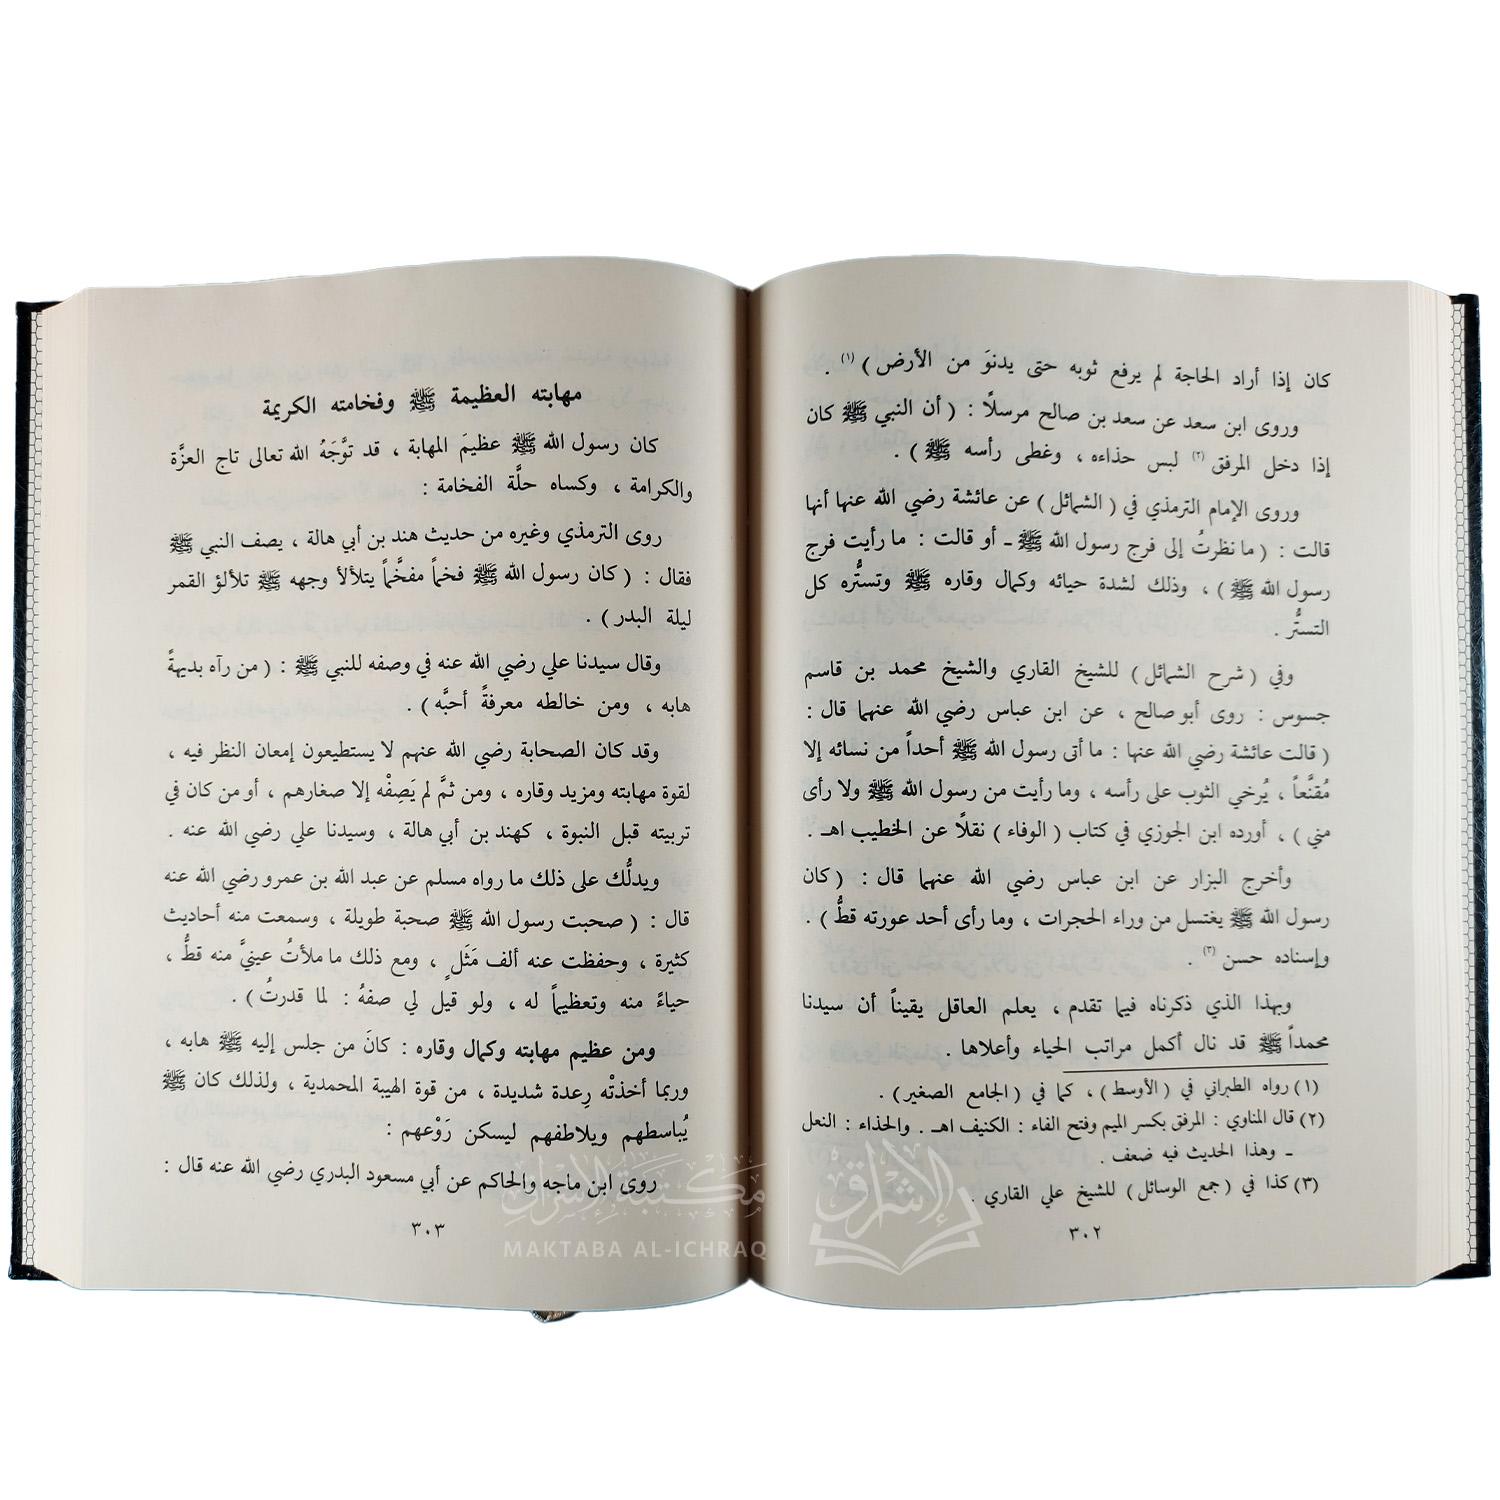 كان إذا أراد الحاجة لم يرفع ثوبه حتى يدنوَ من الأرض ) (١) .
وروى ابن سعد عن سعد بن صالح مرسلًا : ( أن النبي ﷺ كان
إذا دخل المرفق (٢) لبس حذاءه ، وغطى رأسه ﷺ ) .
وروى الإمام الترمذي في ( الشمائل ) عن عائشة رضي الله عنها أنها
قالت : ( ما نظرتُ إلى فرج رسول الله ﷺ ـ أو قالت : ما رأيت فرج
رسول الله ﷺ ) ، وذلك لشدة حيائه وكمال وقاره ﷺ وتستُّره كل
التستُّر .
وفي ( شرح الشمائل ) للشيخ القاري والشيخ محمد بن قاسم
جسوس : روى أبو صالح ، عن ابن عباس رضي الله عنهما قال :
( قالت عائشة رضي الله عنها : ما أتى رسول الله ﷺ أحداً من نسائه إلا
مُقنَّعاً ، يُرخي الثوب على رأسه ، وما رأيت من رسول الله ﷺ ولا رأى
مني ) ، أورده ابن الجوزي في كتاب ( الوفاء ) نقلًا عن الخطيب اهـ .
وأخرج البزار عن ابن عباس رضي الله عنهما قال : ( كان
رسول الله ﷺ يغتسل من وراء الحجرات ، وما رأى أحد عورته قطُّ ) .
وإسناده حسن (٣) .
وبهذا الذي ذكرناه فيما تقدم ، يعلم العاقل يقيناً أن سيدنا
محمداً ﷺ قد نال أكمل مراتب الحياء وأعلاها .
(١) رواه الطبراني في ( الأوسط ) ، كما في ( الجامع الصغير ) .
(٢) قال المناوي : المرفق بكسر الميم وفتح الفاء : الكنيف اهـ . والحذاء : النعل
ـ وهذا الحديث فيه ضعف .
(٣) كذا في ( جمع الوسائل ) للشيخ علي القاري .
٣٠٢
مهابته العظيمة ﷺ وفخامته الكريمة
كان رسول الله ﷺ عظيمَ المهابة ، قد توَّجَهُ الله تعالى تاج العزَّة
والكرامة ، وكساه حلَّة الفخامة :
روى الترمذي وغيره من حديث هند بن أبي هالة ، يصف النبي ﷺ
فقال : ( كان رسول الله ﷺ فخماً مفخَّماً يتلألأ وجهه ﷺ تلألؤ القمر
ليلة البدر ) .
وقال سيدنا علي رضي الله عنه في وصفه للنبي ﷺ : ( من رآه بديهةً
هابه ، ومن خالطه معرفةً أحبَّه ) .
وقد كان الصحابة رضي الله عنهم لا يستطيعون إمعان النظر فيه ،
لقوة مهابته ومزيد وقاره ، ومن ثمَّ لم يَصِفْه إلا صغارهم ، أو من كان في
تربيته قبل النبوة ، كهند بن أبي هالة ، وسيدنا علي رضي الله عنه .
ويدلُّك على ذلك ما رواه مسلم عن عبد الله بن عمرو رضي الله عنه
قال : ( صحبت رسول الله ﷺ صحبة طويلة ، وسمعت منه أحاديث
كثيرة ، وحفظت عنه ألف مَثَلٍ ، ومع ذلك ما ملأتُ عينيَّ منه قطُّ ،
حياءً منه وتعظيماً له ، ولو قيل لي صفهُ : لما قدرتُ ) .
ومن عظيم مهابته وكمال وقاره : كانَ من جلس إليه ﷺ هابه ،
وربما أخذتْه رِعدة شديدة ، من قوة الهيبة المحمدية ، ولذلك كان ﷺ
يُباسطهم ويلاطفهم ليسكن رَوْعهم :
روى ابن ماجه والحاكم عن أبي مسعود البدري رضي الله عنه قال :
٣٠٣
مكتبة الإشراق
MAKTABA AL-ICHRAQ
الإشراق